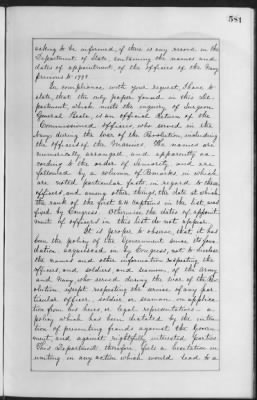 581
asking to be informed, if there is any record in the
Department of State, containing the names and
dates of appointment of the officers of the Navy
previous to 1798
In compliance with your request, I have to
state, that the only paper found in this De-
partment, which meets the inquiry of Surgeon
General Beale, is an official Return of the
Commissioned Officers who served in the
Navy during the War of the Revolution including
the officers of the Marines. The names are
numerically arranged and apparently ac-
cording to the order of seniority and are
followed by a column of Remarks, in which
are noted particular facts, in regard to these
officers and among other things, the date at which
the rank of the first 24 Captains in the list, was
fixed by Congress. Otherwise the dates of appoint-
ment of officers in this list do not appear.
It is proper to observe, that, it has
been the policy of the Government since its foun-
dation acquiesced in by Congress, not to disclose
the names and other information respecting the
officers, and soldiers and seamen, of the Army
and Navy who served during the War of the Rev-
olution except respecting the service of any par-
ticular officer, soldier or seaman on applica-
tion from his heirs, or legal representatives. a
policy which has been dictated by the inten-
tion of preventing frauds against the Govern-
ment, and against rightfully interested parties.
This Department, therefore, felt a hesitation in
uniting in any action which would lead to a